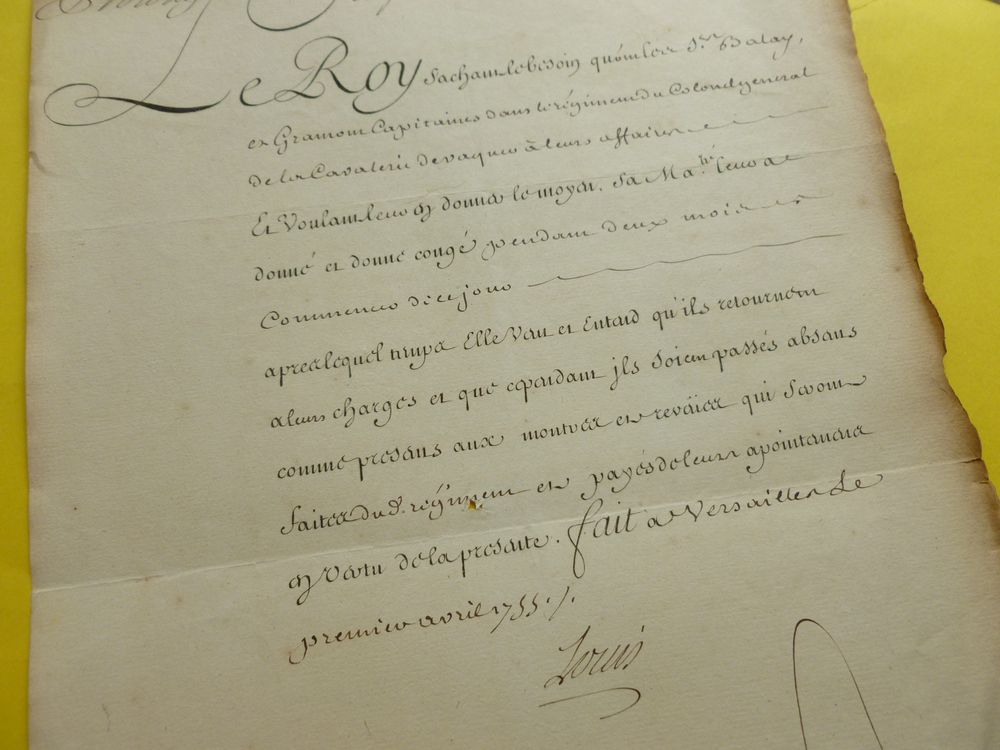 Le Roy sachant le besoin qu'ont les Srs Balay,
et Gramont Capitaines dans le régiment du Colonel general
de la Cavalerie de vaquer à leurs affaires
Et Voulant leur en donner le moyen. Sa Maté. leur a
donné et donne congé pendant deux mois a
Commencer de ce jour
apres lequel temps Elle Veut et Entend qu'ils retournent
a leurs charges et que cependant jls soient passés absans
comme presens aux montres et reveües qui seront
faites dud. régiment et payés de leurs apointemens
en Vertu de la presente. fait a Versailles le
premier avril 1755./.
Louis